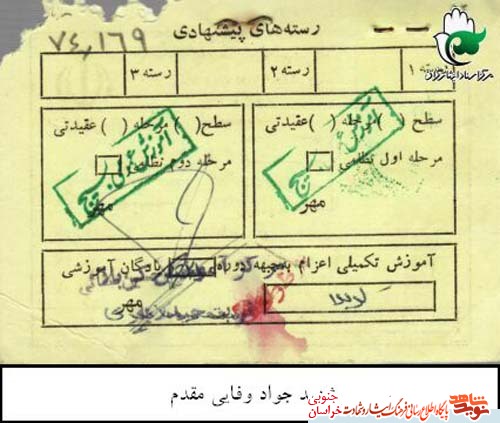 ۷۴٫۱۶۹
رسته‌های پیشنهادی
مرکز اسناد ایثارگران
رسته ۱ رسته ۲ رسته ۳
سطح ( ) مرحله ( ) عقیدتی
مرحله اول نظامی
مهر
سطح ( ) مرحله ( ) عقیدتی
مرحله دوم نظامی
مهر
آموزش بسیج
آموزش بسیج
آموزش تکمیلی اعزام بجبهه دوره پادگان آموزشی
مهر
شهید جواد وفایی مقدم
نوید شاهد
پایگاه اطلاع رسانی فرهنگ ایثار و شهادت خراسان جنوبی